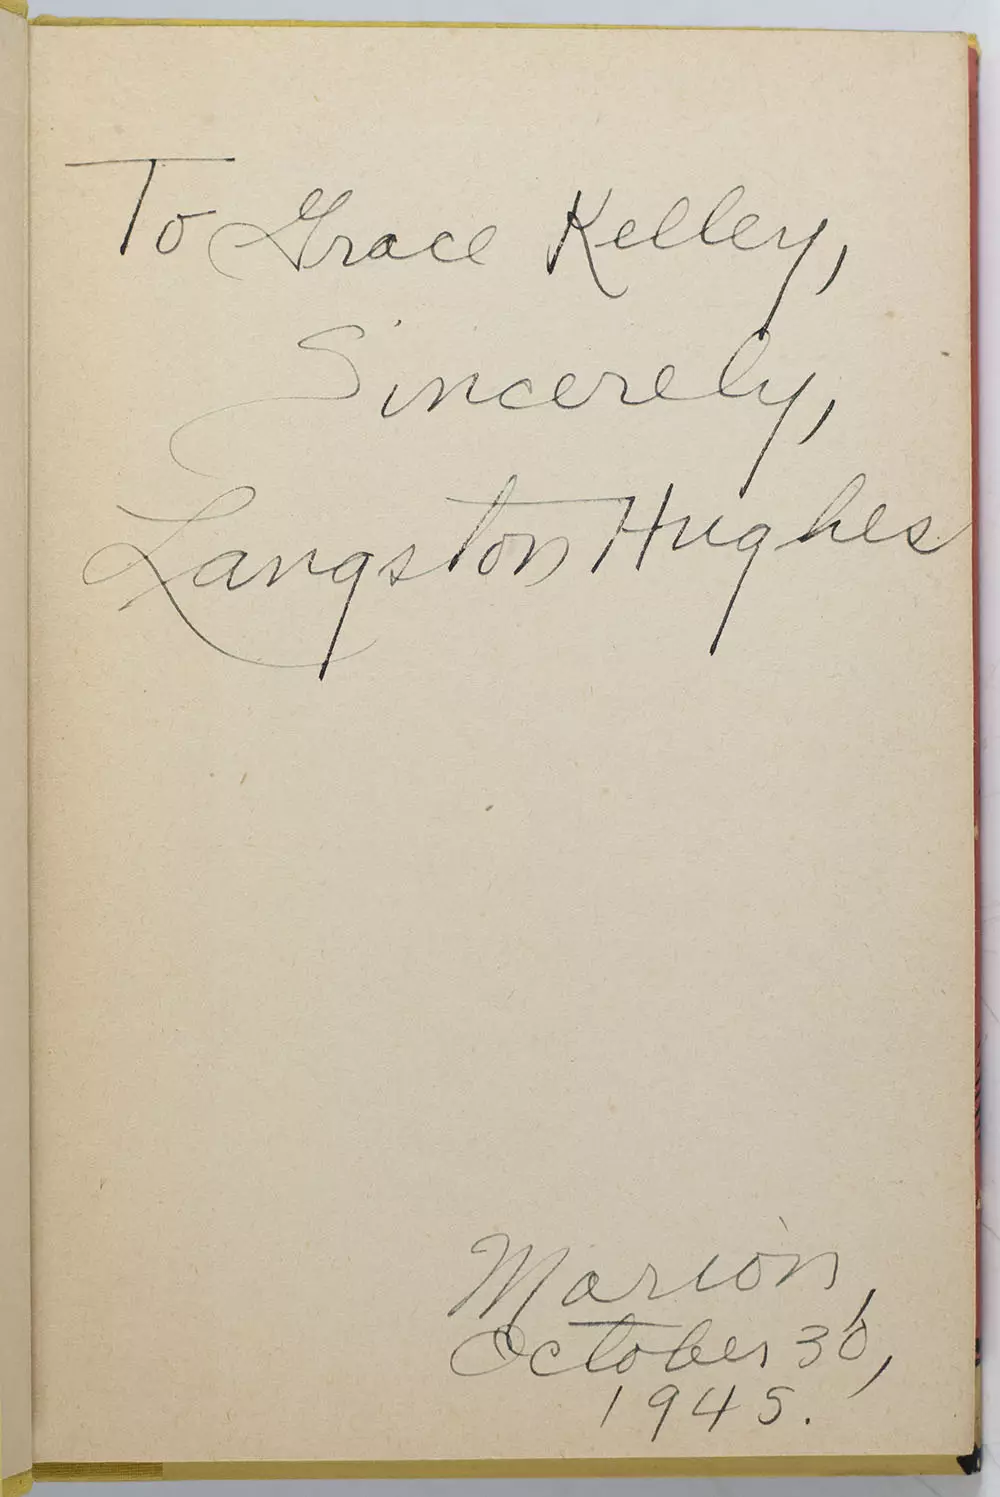 To Grace Kelley,
Sincerely,
Langston Hughes
Marion,
October 30,
1945.